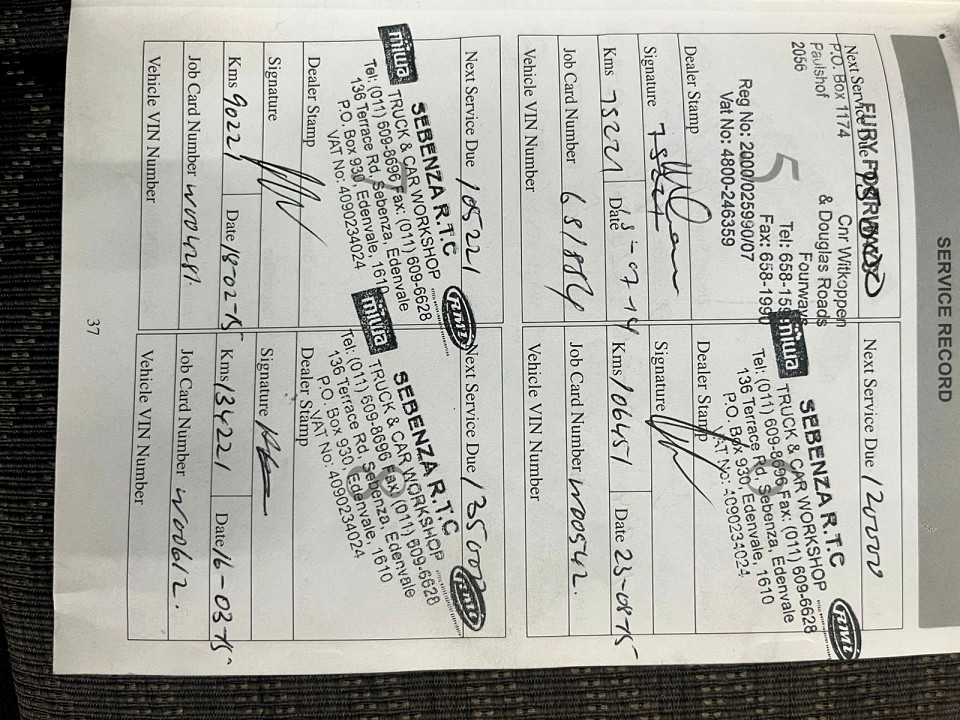 SERVICE RECORD
Next Service Due
FURY FORD
P.O. Box 1174
Paulshof
2056
Cnr Witkoppen
& Douglas Roads
Fourways
Tel: 658-15
Fax: 658-1990
5
Reg No: 2000/025990/07
Vat No: 4800-246359
Dealer Stamp
Signature
75221
Kms 75221
Date 15-07-14
Job Card Number
Vehicle VIN Number
Next Service Due 120000
SEBENZA R.T.C
RMI
miwa
TRUCK & CAR WORKSHOP
Tel: (011) 609-8696 Fax: (011) 609-6628
136 Terrace Rd, Sebenza, Edenvale
P.O. Box 930, Edenvale, 1610
VAT No: 4090234024
Dealer Stamp
Signature
Kms 106451
Date 23-08-15
Job Card Number W00542.
Vehicle VIN Number
Next Service Due 105221
SEBENZA R.T.C
RMI
miwa
TRUCK & CAR WORKSHOP
Tel: (011) 609-8696 Fax: (011) 609-6628
136 Terrace Rd, Sebenza, Edenvale
P.O. Box 930, Edenvale, 1610
VAT No: 4090234024
Dealer Stamp
Signature
Kms 90221
Date 18-02-15
Job Card Number W004281.
Vehicle VIN Number
Next Service Due 135000
SEBENZA R.T.C
RMI
miwa
TRUCK & CAR WORKSHOP
Tel: (011) 609-8696 Fax: (011) 609-6628
136 Terrace Rd, Sebenza, Edenvale
P.O. Box 930, Edenvale, 1610
VAT No: 4090234024
8
Dealer Stamp
Signature
Kms 134221
Date 16-03-15
Job Card Number W00612.
Vehicle VIN Number
37